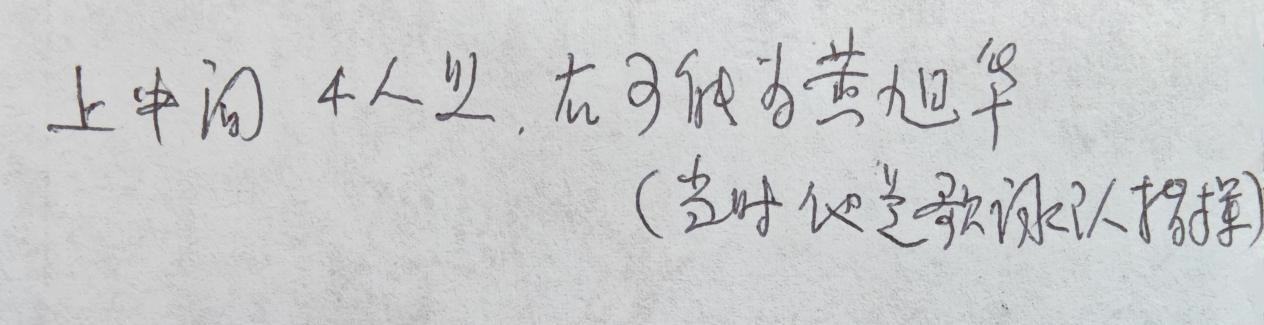 上中间 4人照,右可能为黄旭华
(当时他是歌咏队指挥)